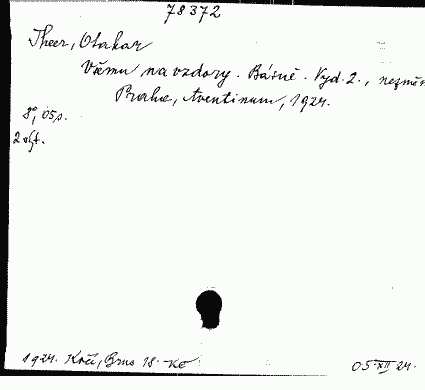 78372
Theer, Otakar
Všemu na vzdory. Básně. Vyd. 2., nezměn
Praha, Aventinum, 1924.
8°, 05 s.
2 výt.
1924. Kočí, Brno 18. Kč
05 XII 24.